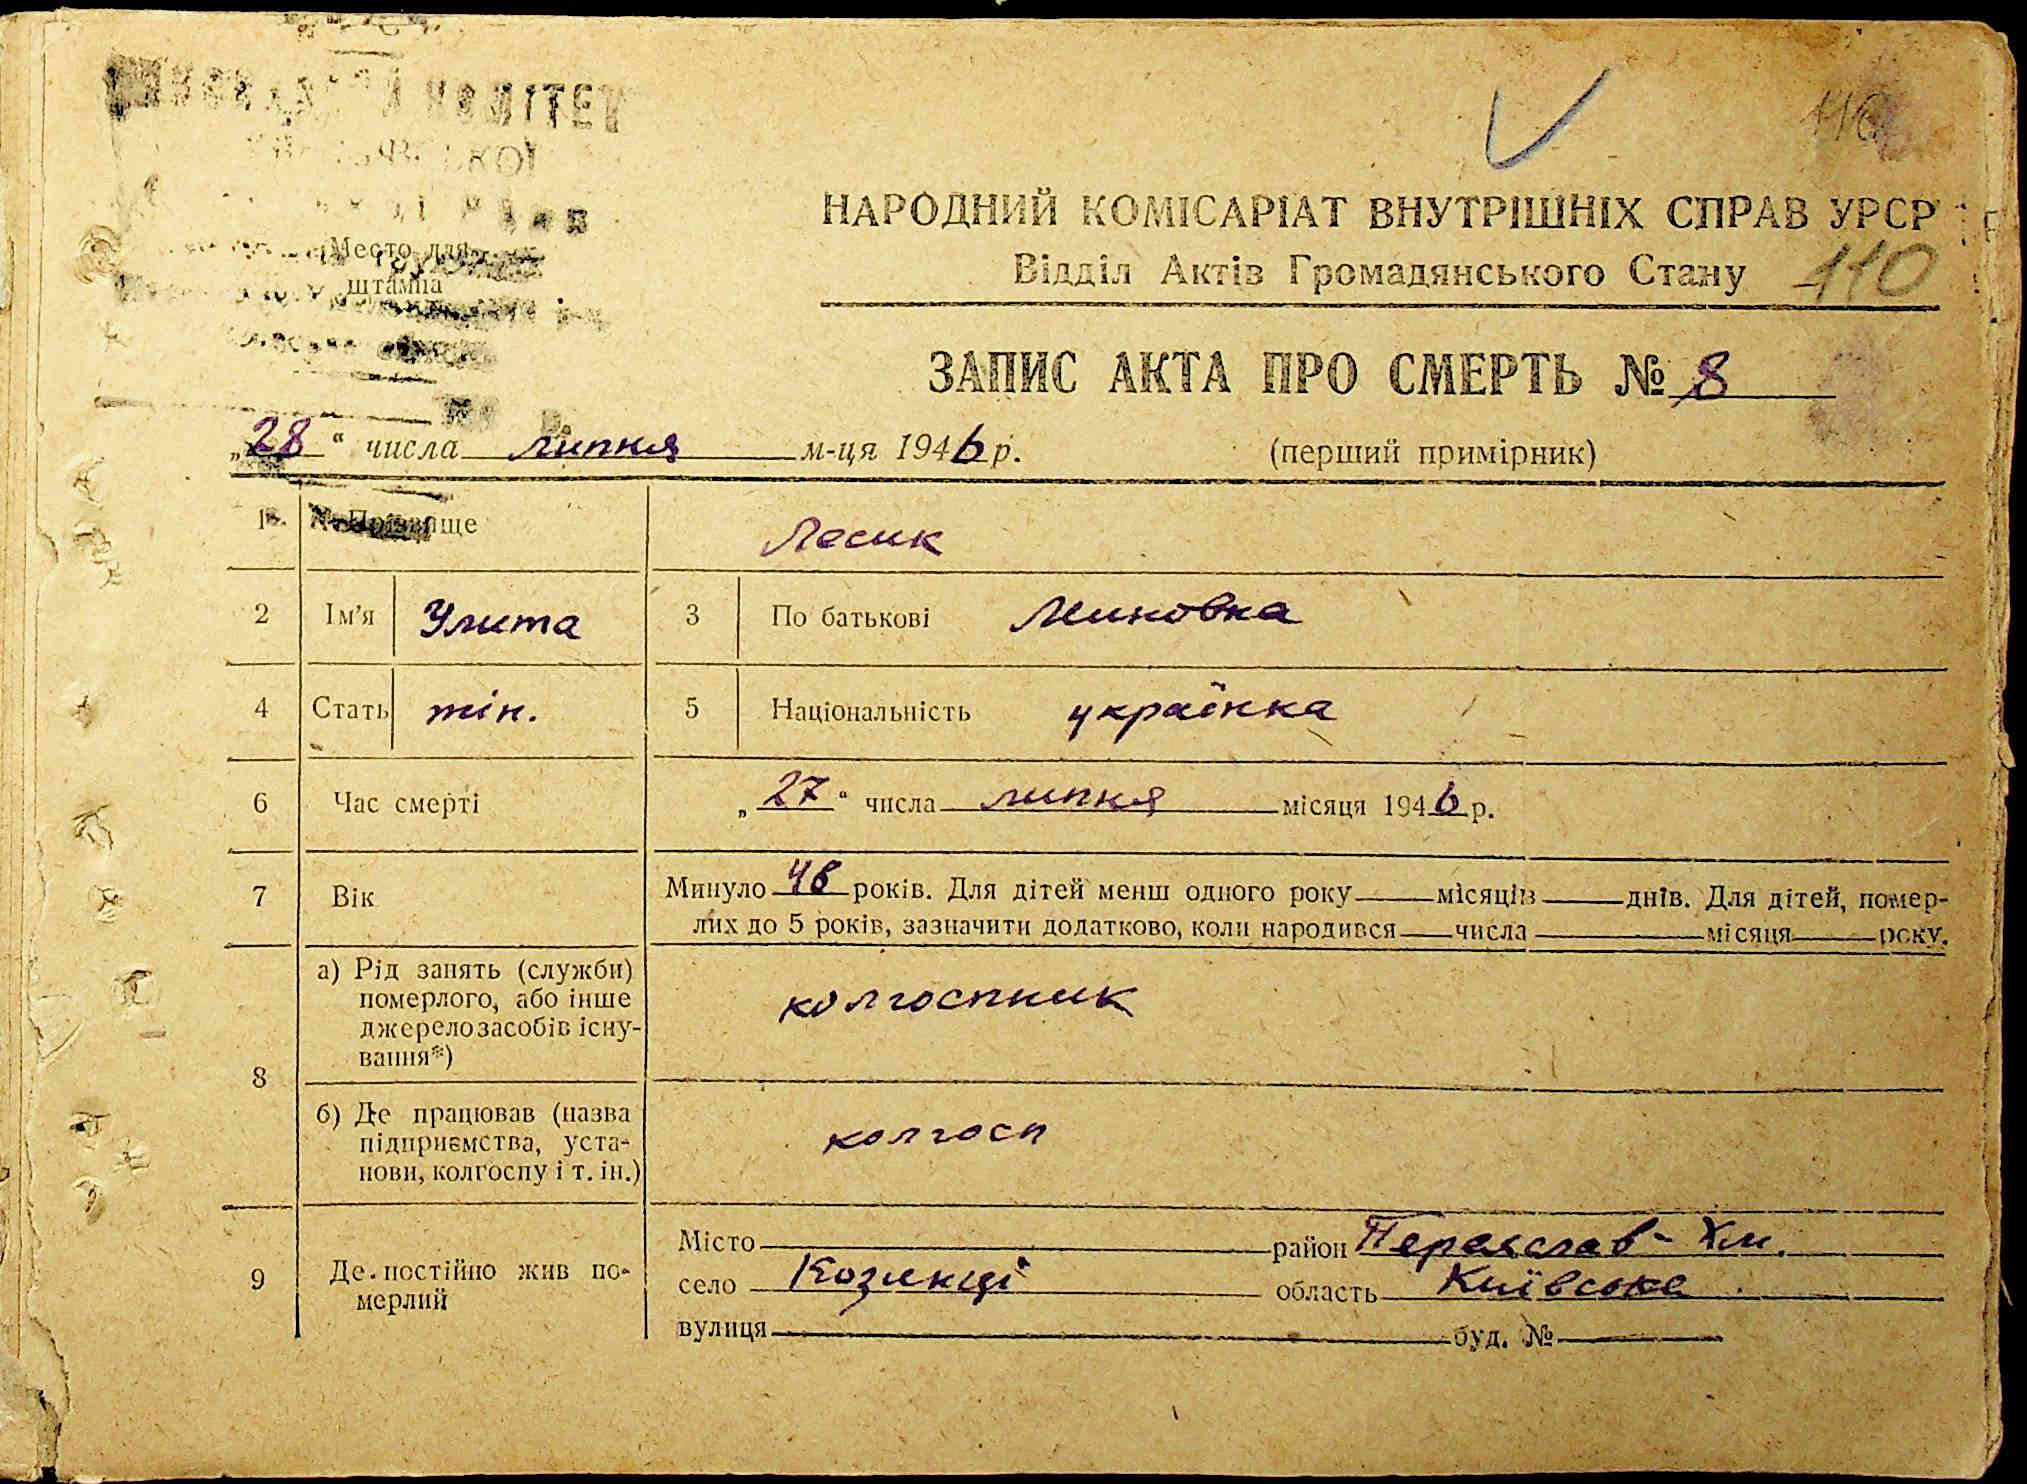 КОМІТЕТ
110
НАРОДНИЙ КОМІСАРІАТ ВНУТРІШНІХ СПРАВ УРСР
Відділ Актів Громадянського Стану 110
Место для
штампа
ЗАПИС АКТА ПРО СМЕРТЬ № 8
„28“ числа липня м-ця 1946 р. (перший примірник)
1 Прізвище Лесик
2 Ім'я Улита 3 По батькові Миновна
4 Стать жін. 5 Національність українка
6 Час смерті „27“ числа липня місяця 1946 р.
7 Вік Минуло 48 років. Для дітей менш одного року місяців днів. Для дітей, помер-
лих до 5 років, зазначити додатково, коли народився числа місяця року.
8 а) Рід занять (служби)
померлого, або інше
джерело засобів існу-
вання*) колгоспник
б) Де працював (назва
підприємства, уста-
нови, колгоспу і т. ін.) колгосп
9 Де постійно жив по-
мерлий
Місто район Переяслав-Хм.
село Козинці область Київська
вулиця буд. №